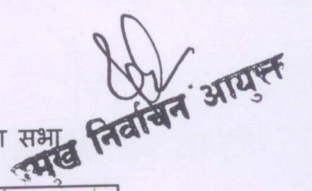 सभा
प्रमुख निर्वाचन आयुक्त